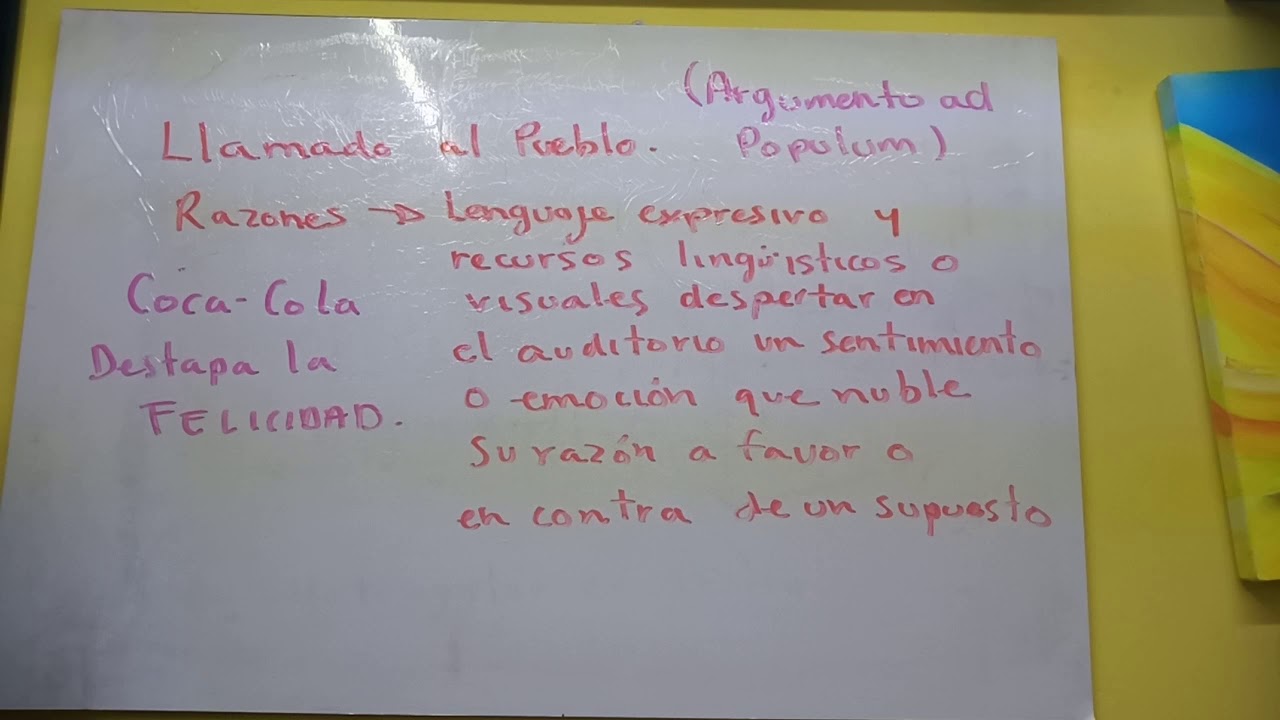 (Argumento ad
Llamado al Pueblo. Populum)
Razones → Lenguaje expresivo y
recursos lingüisticos o
visuales despertar en
el auditorio un sentimiento
o emoción que nuble
su razón a favor o
en contra de un supuesto
Coca-Cola
Destapa la
FELICIDAD.